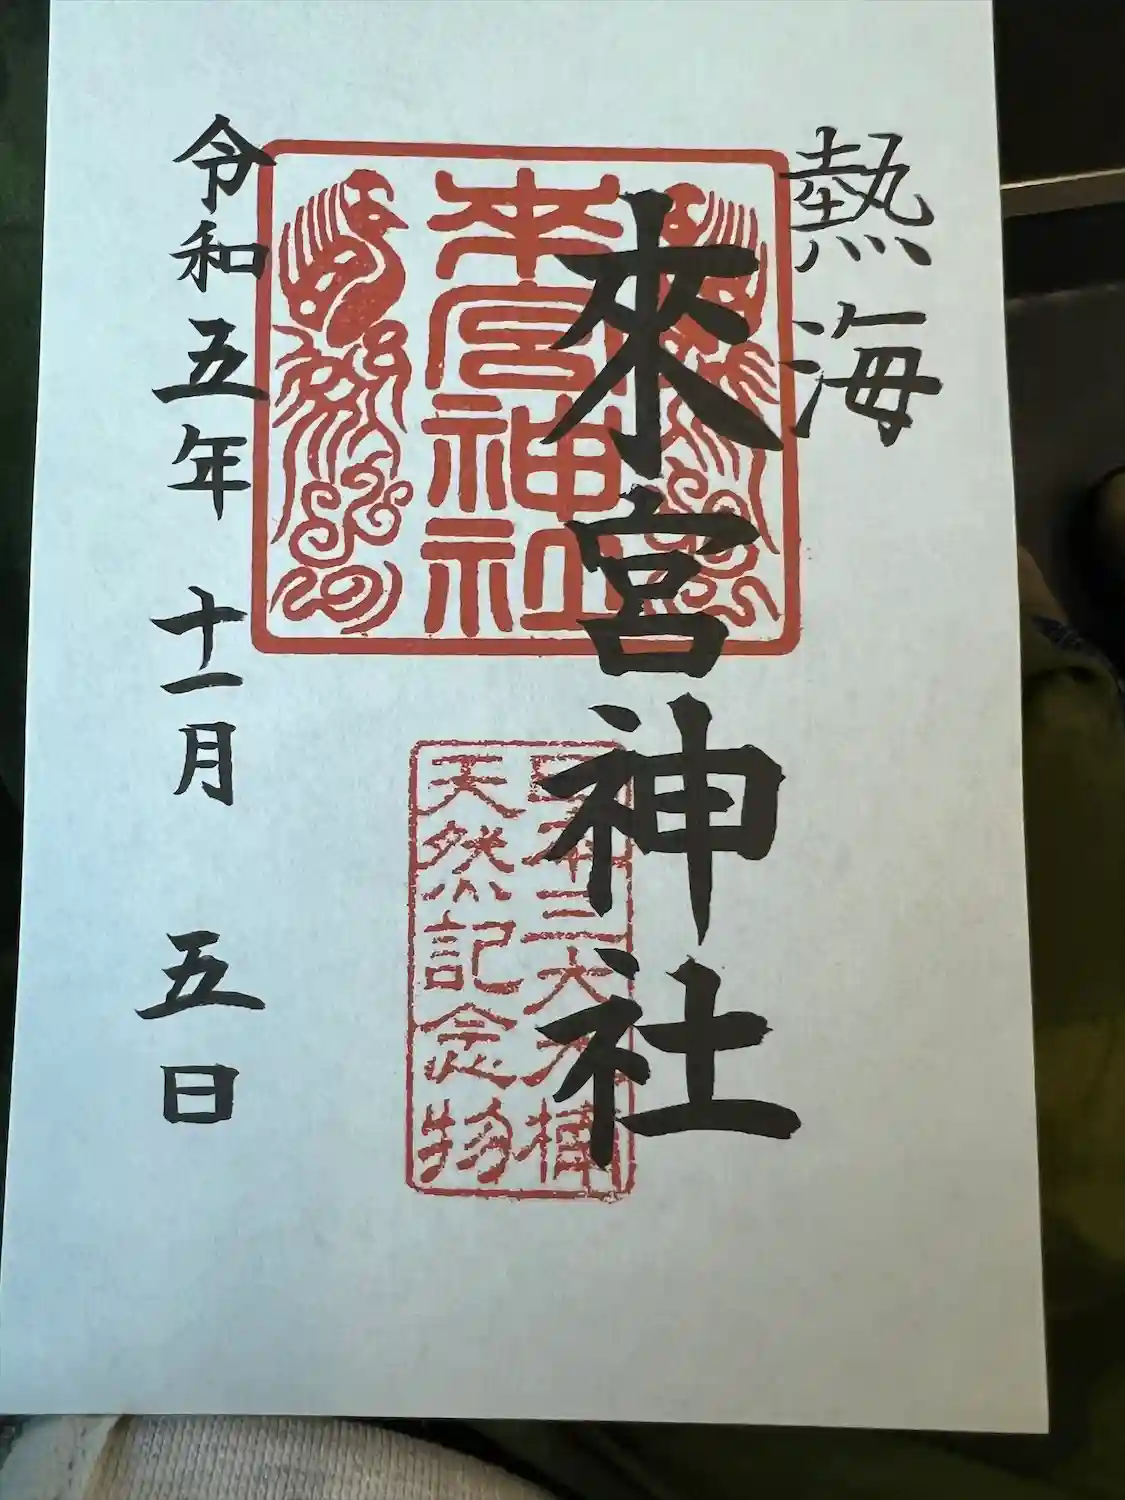 熱海
來宮神社
來宮神社
日本三大大楠
天然記念物
令和五年 十一月 五日